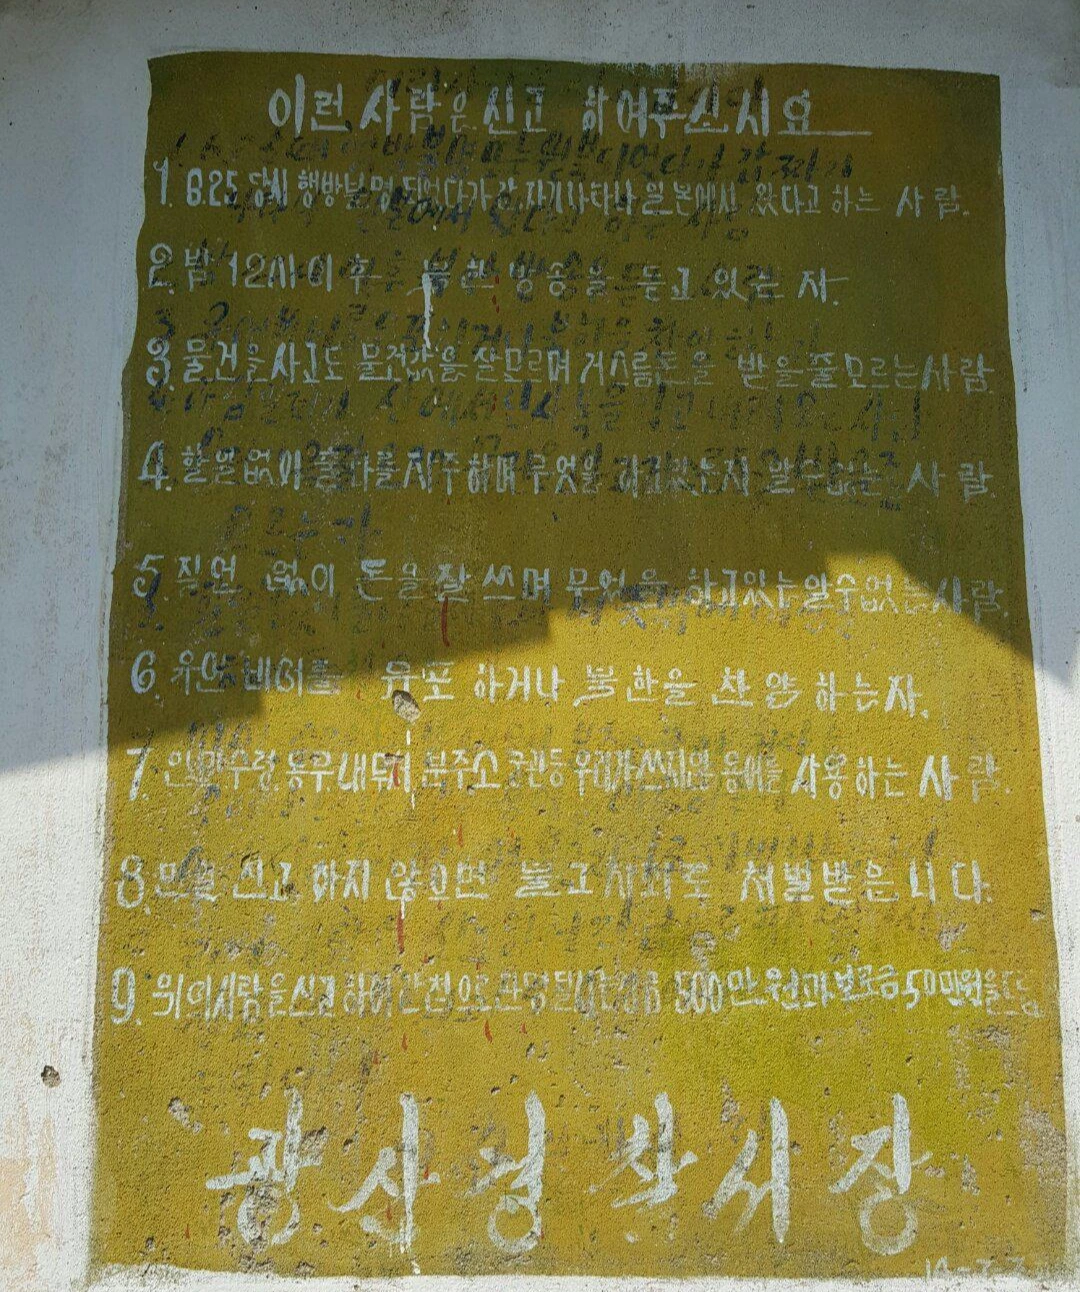 이런 사람은 신고 하여주십시요
1. 6.25 당시 행방불명 되었다가 갑자기 나타나 일본에서 왔다고 하는 사람.
2. 밤 12시 이후 북한 방송을 듣고 있는 자.
3. 물건을 사고도 물건값을 잘모르며 거스름돈을 받을줄모르는 사람.
4. 할일없이 출타를 자주 하며 무엇을 하고있는지 알수없는 사람
5. 직업 없이 돈을 잘 쓰며 무엇을 하고있나 알수없는 사람.
6. 유언비어를 유포 하거나 북한을 찬양 하는자.
7. 인민 수령 동무 내무서 등 우리가 쓰지않 용어를 사용하는 사람.
8. 만일 신고 하지 않으면 불고지죄로 처벌받읍니다.
9. 위의사람을신고하여 간첩으로 판명 500만원과 보로금 50만원을
광산경찰서장